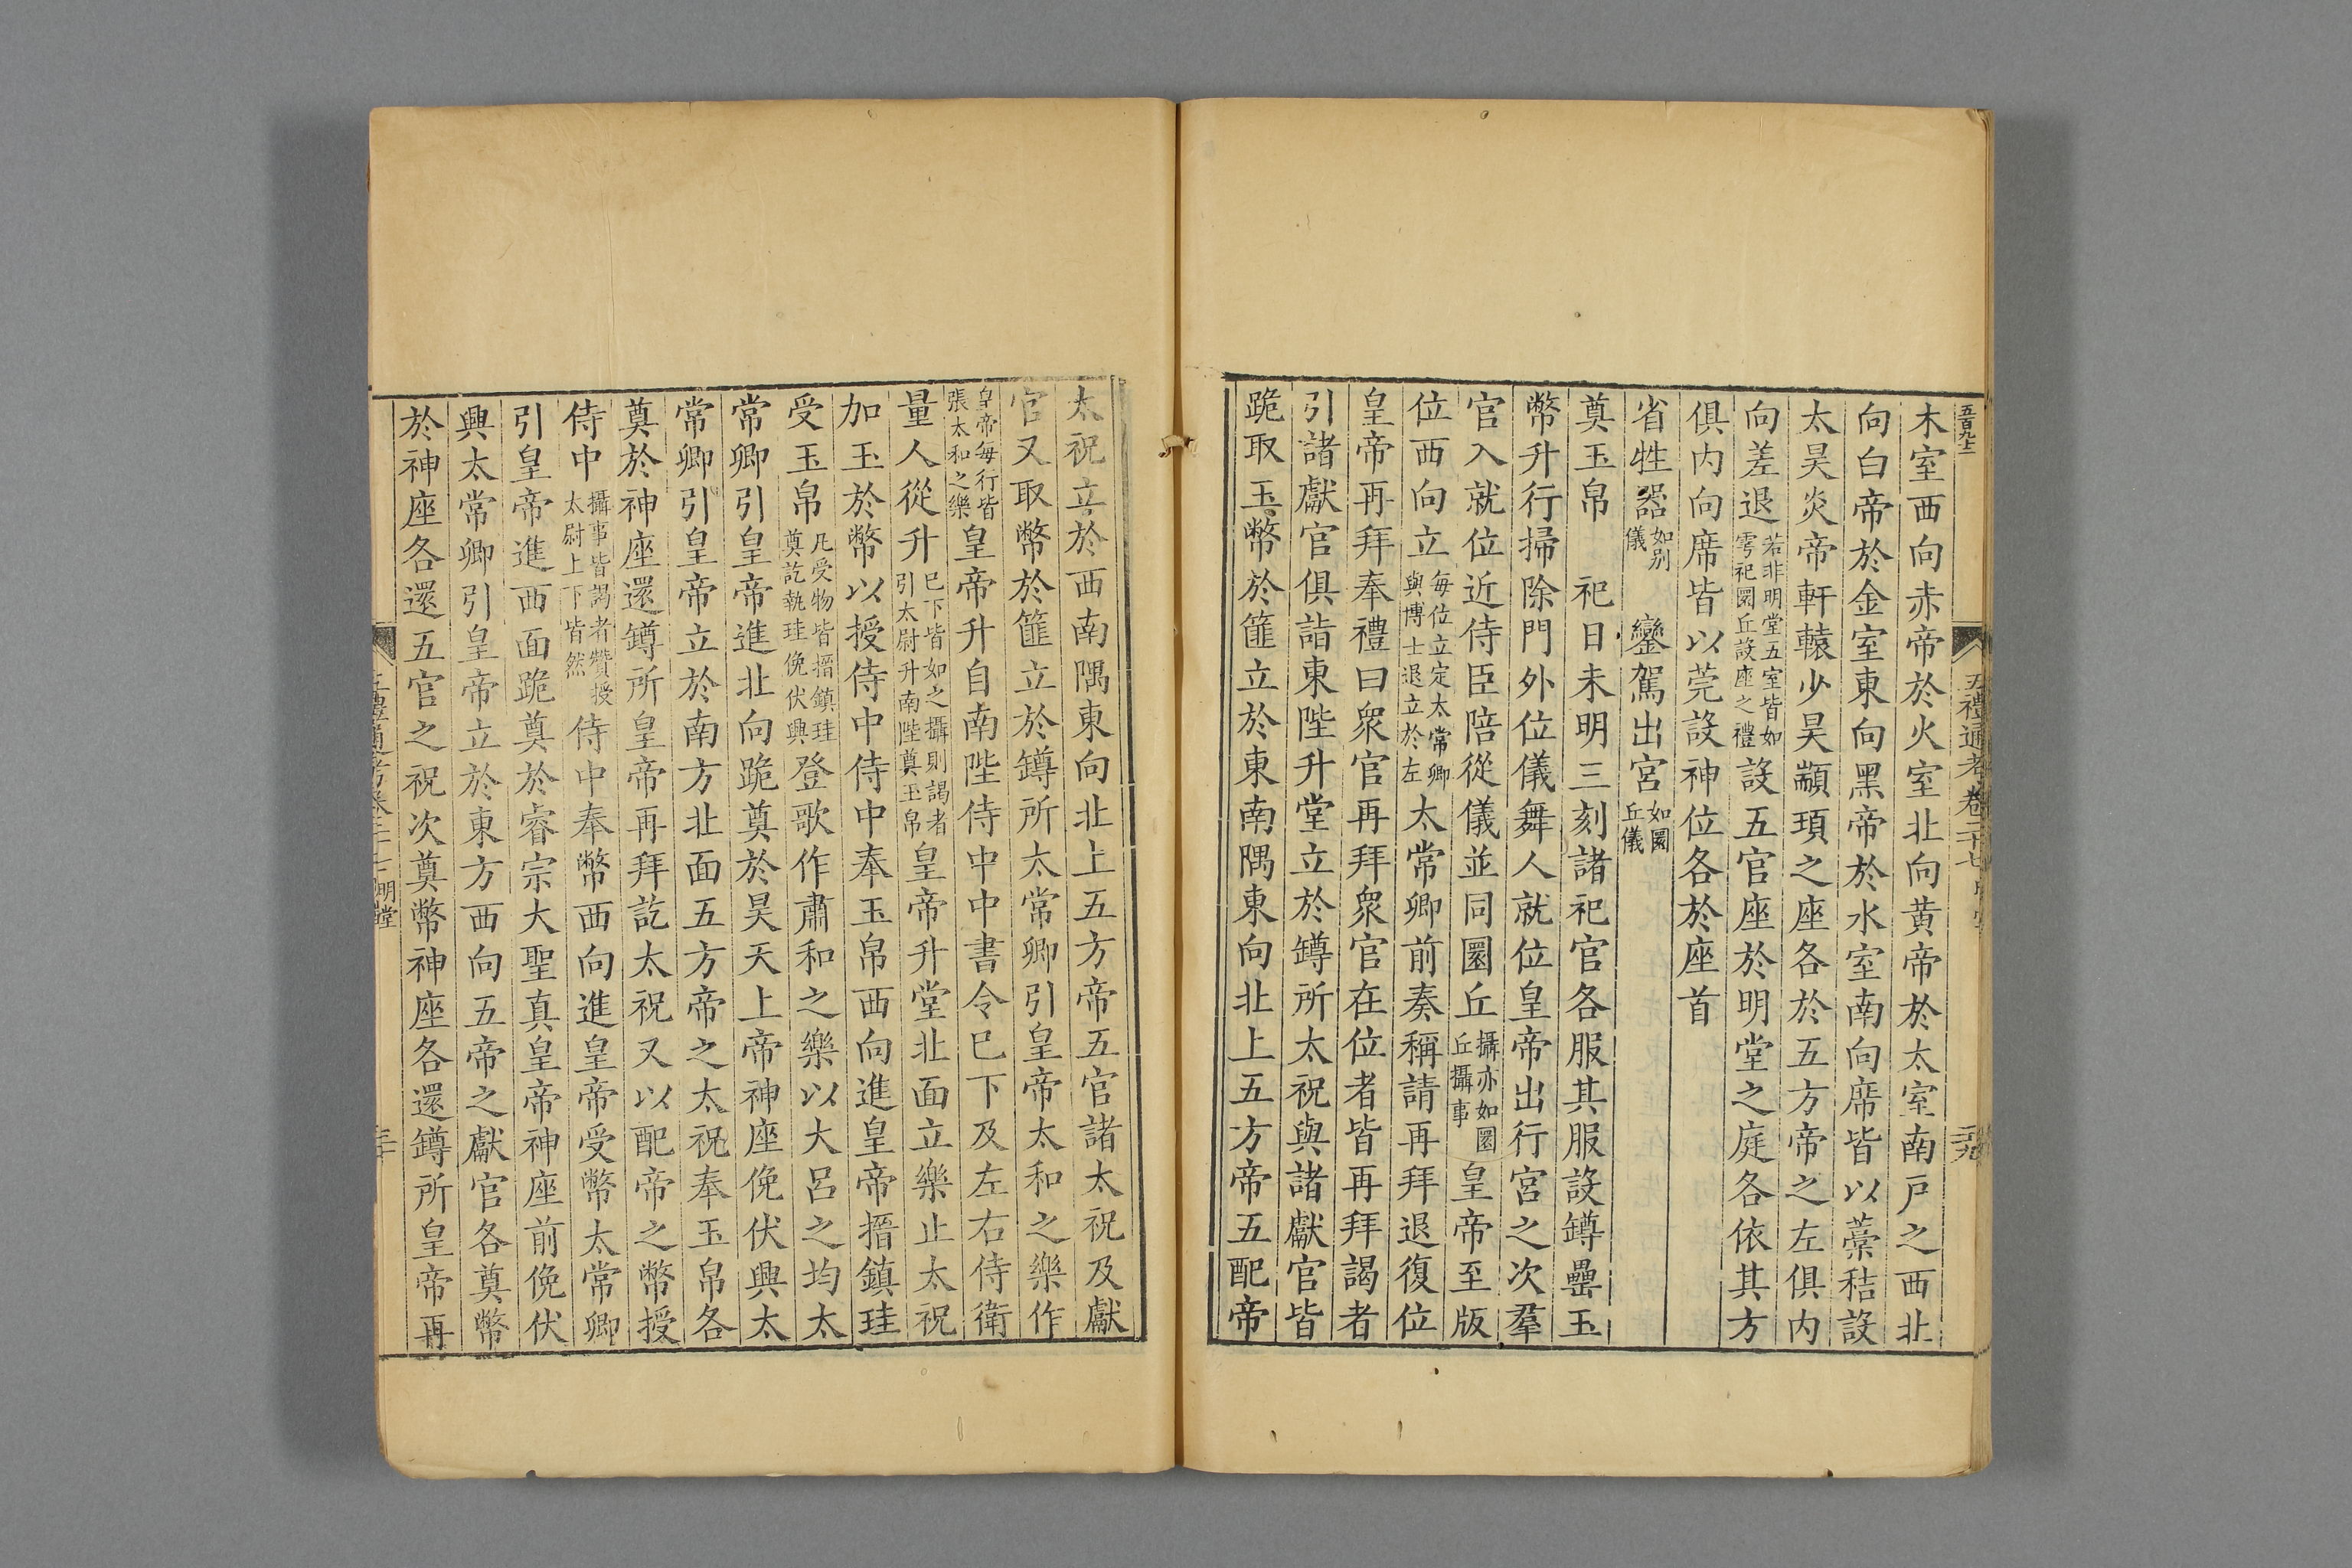 五百九十二
五禮通考卷二十七 明堂
二十九
木室西向赤帝於火室北向黄帝於太室南戸之西北
向白帝於金室東向黑帝於水室南向席皆以藁秸設
太昊炎帝軒轅少昊顓頊之座各於五方帝之左俱内
向差退若非明堂五室皆如雩祀圜丘設座之禮設五官座於明堂之庭各依其方
俱内向席皆以莞設神位各於座首
省牲器如别儀 鑾駕出宮如圜丘儀
奠玉帛 祀日未明三刻諸祀官各服其服設罇罍玉
幣升行掃除門外位儀舞人就位皇帝出行宮之次羣
官入就位近侍臣陪從儀並同圜丘攝亦如圜丘攝事皇帝至版
位西向立每位立定太常卿與博士退立於左太常卿前奏稱請再拜退復位
皇帝再拜奉禮曰衆官再拜衆官在位者皆再拜謁者
引諸獻官俱詣東陛升堂立於罇所太祝與諸獻官皆
跪取玉幣於篚立於東南隅東向北上五方帝五配帝
太祝立於西南隅東向北上五方帝五官諸太祝及獻
官又取幣於篚立於罇所太常卿引皇帝太和之樂作
皇帝每行皆張太和之樂皇帝升自南陛侍中中書令已下及左右侍衛
量人從升已下皆如之攝則謁者引太尉升南陛奠玉帛皇帝升堂北面立樂止太祝
加玉於幣以授侍中侍中奉玉帛西向進皇帝搢鎮珪
受玉帛凡受物皆搢鎮珪奠訖執珪俛伏興登歌作肅和之樂以大呂之均太
常卿引皇帝進北向跪奠於昊天上帝神座俛伏興太
常卿引皇帝立於南方北面五方帝之太祝奉玉帛各
奠於神座還罇所皇帝再拜訖太祝又以配帝之幣授
侍中攝事皆謁者贊授太尉上下皆然侍中奉幣西向進皇帝受幣太常卿
引皇帝進西面跪奠於睿宗大聖真皇帝神座前俛伏
興太常卿引皇帝立於東方西向五帝之獻官各奠幣
於神座各還五官之祝次奠幣神座各還罇所皇帝再
五禮通考卷二十七 明堂
三十